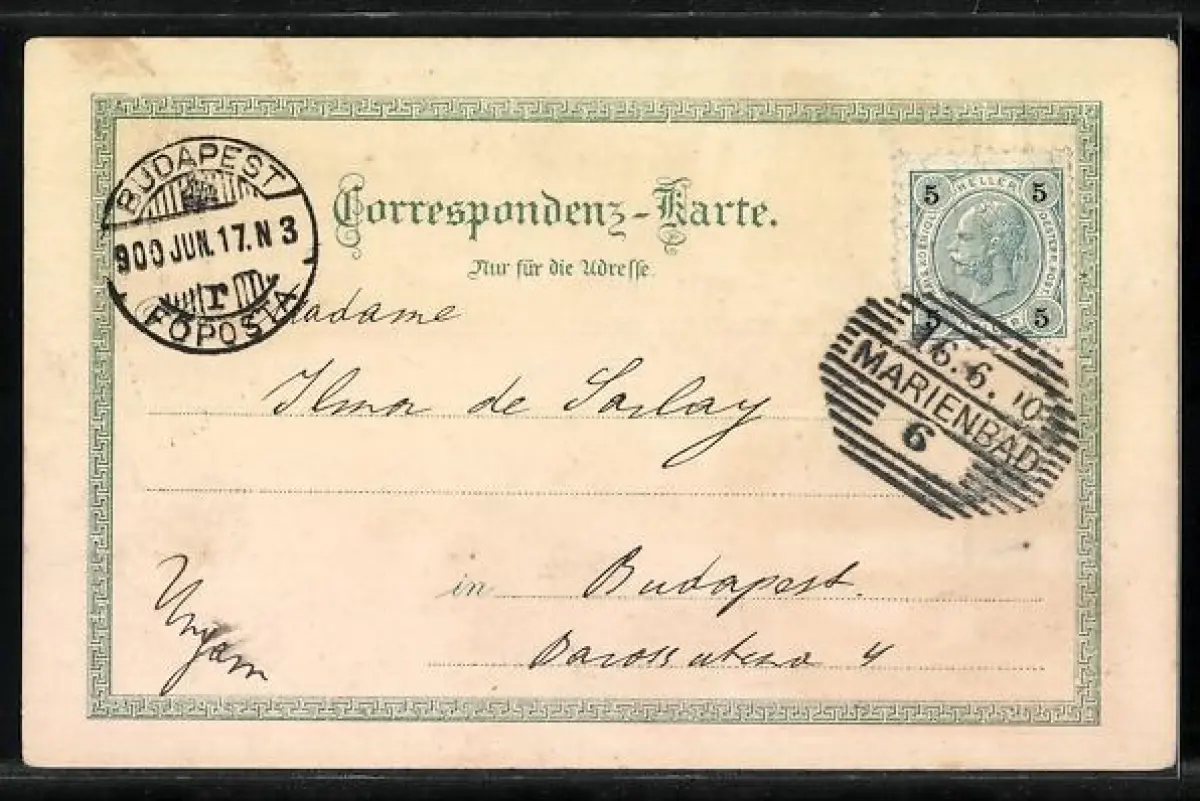 Correspondenz-Karte.
Nur für die Adresse.
BUDAPEST
900 JUN. 17. N 3
r
FŐPOSTA
5 HELLER 5
5 5
16. 6. 10
MARIENBAD
6
Madame
Ilma de Sarlay
in Budapest.
Baross utcza 4
Ungarn